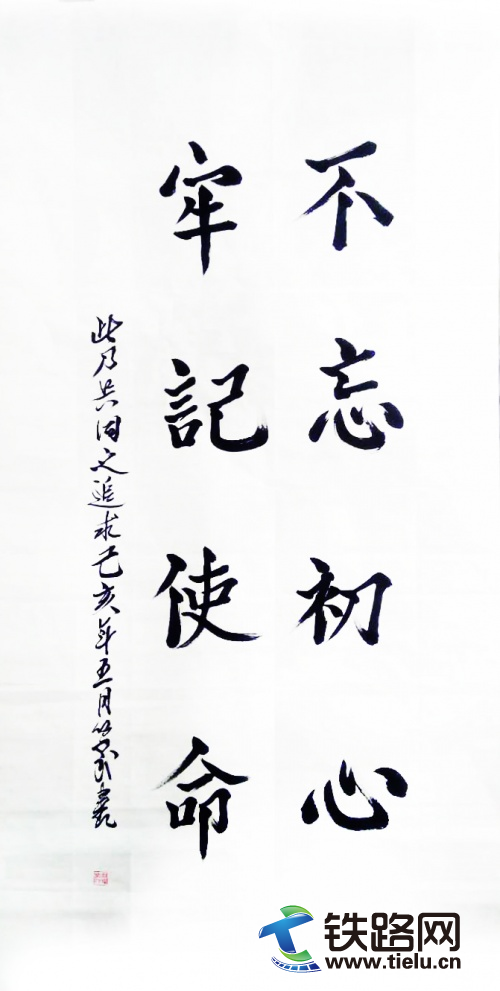 不忘初心
牢記使命
此乃共同之追求己亥年五月
铁路网
www.tielu.cn